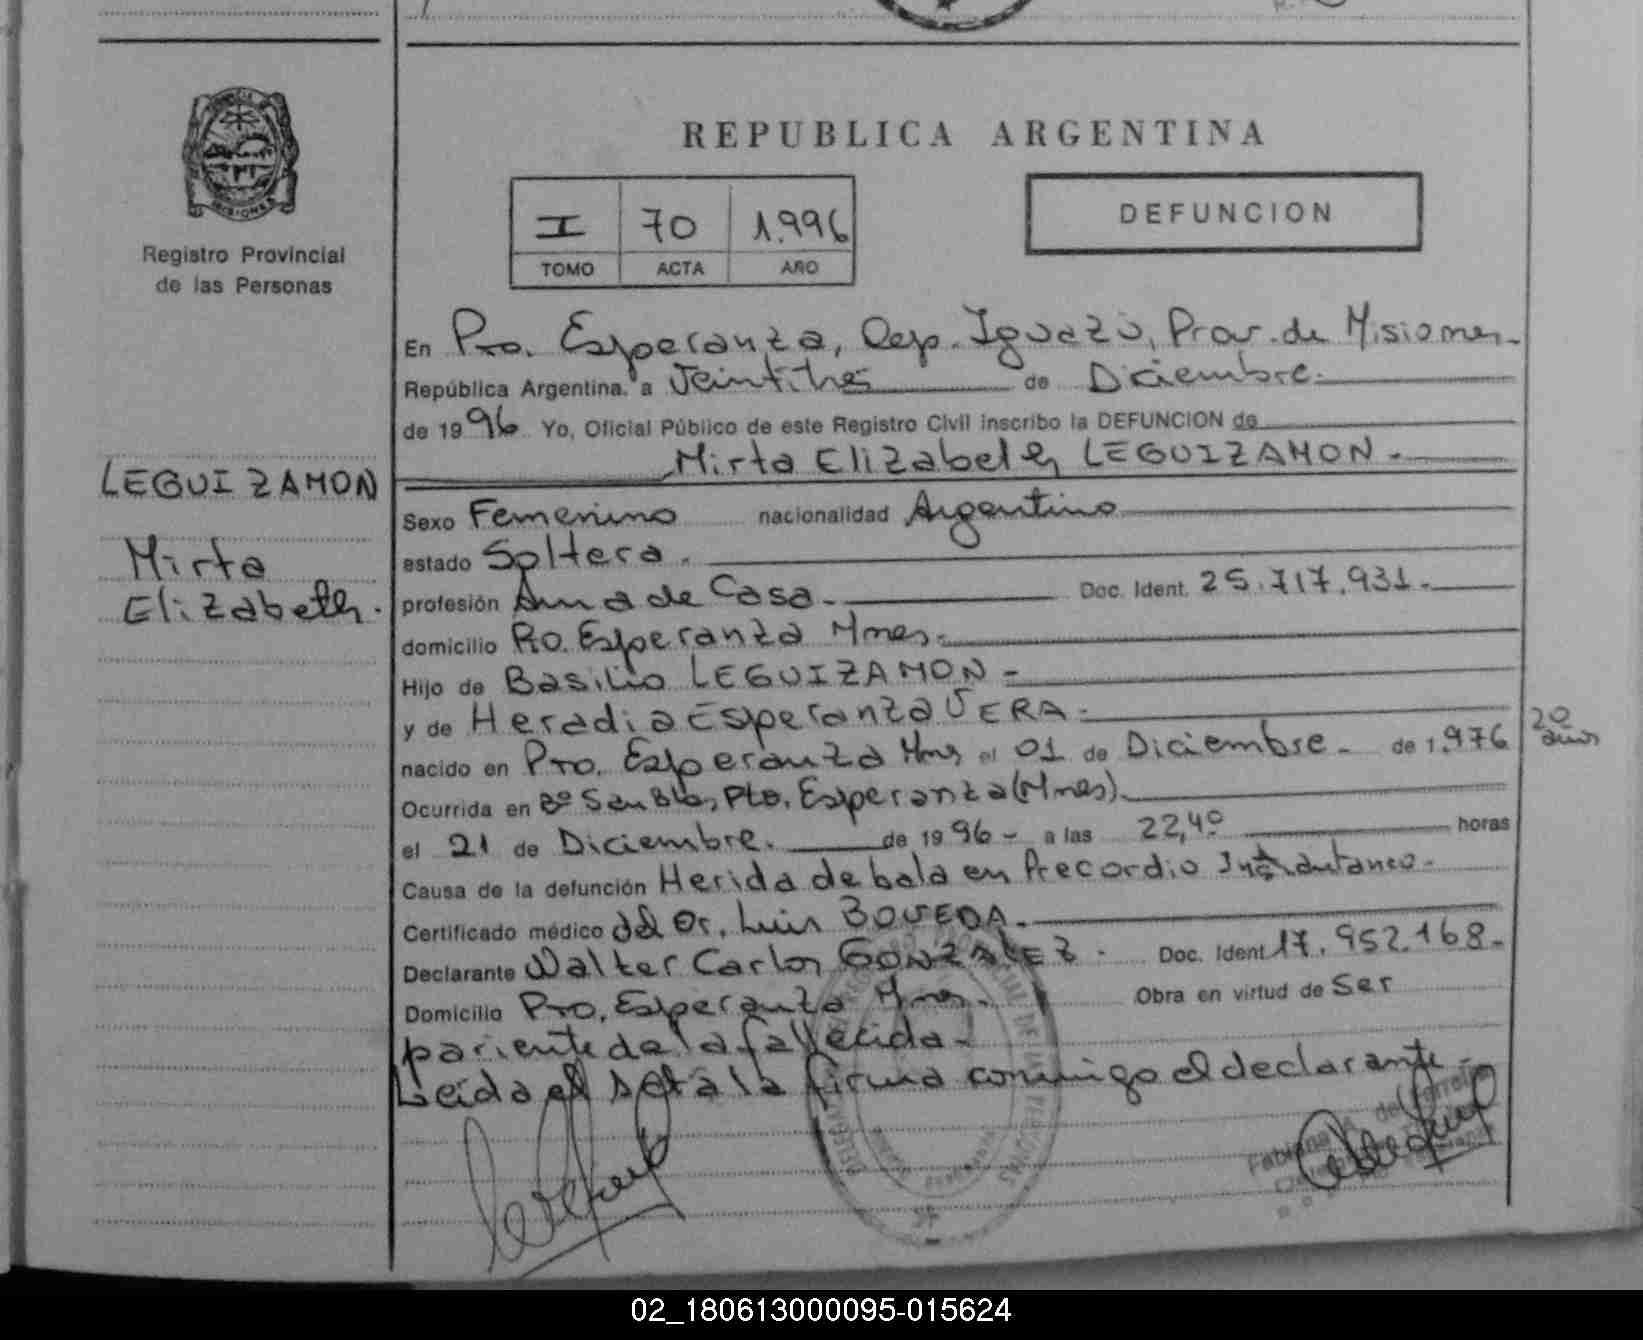 MISIONES
Registro Provincial
de las Personas
REPUBLICA ARGENTINA
I 70 1.996
TOMO ACTA AÑO
DEFUNCION
En Pto. Esperanza, Dep. Iguazú, Prov. de Misiones.
República Argentina. a Veintitres de Diciembre.
de 1996 Yo, Oficial Público de este Registro Civil inscribo la DEFUNCION de
Mirta Elizabeth LEGUIZAMON.
LEGUIZAMON
Mirta
Elizabeth.
Sexo Femenino nacionalidad Argentina
estado Soltera.
profesión Ama de Casa. Doc. Ident. 25.717.931.
domicilio Pto. Esperanza Mnes.
Hijo de Basilio LEGUIZAMON
y de Heradia Esperanza VERA.
nacido en Pto. Esperanza Mns el 01 de Diciembre. de 1.976 20 años
Ocurrida en Bº San Blas, Pto. Esperanza (Mnes).
el 21 de Diciembre. de 1996 a las 22,40 horas
Causa de la defunción Herida de bala en Precordio Instantaneo.
Certificado médico del Dr. Luis BOVEDA.
Declarante Walter Carlos GONZALEZ. Doc. Ident 17.952.168.
Domicilio Pto. Esperanza Mnes. Obra en virtud de Ser
pariente de la fallecida.
Leida el acta la firma conmigo el declarante.
Fabiana A. de
02_180613000095-015624